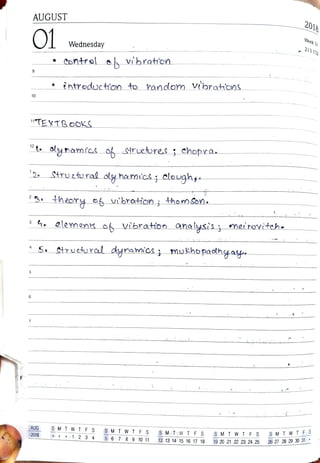 AUGUST
2018
01 Wednesday
Week 31
213
• control of vibration
9
• introduction to random vibrations
10
11 TEXTBOOKS
12 1. dynamics of structures ; chopra.
1 2. Structural dynamics ; clough,.
2 3. theory of vibration ; thomson.
3 4. elements of vibration analysis ; meirovitch.
4 5. structural dynamics ; mukhopadhyay.
5
6
7
AUG S M T W T F S S M T W T F S S M T W T F S S M T W T F S S M T W T F S
2018 • • • 1 2 3 4 5 6 7 8 9 10 11 12 13 14 15 16 17 18 19 20 21 22 23 24 25 26 27 28 29 30 31 •